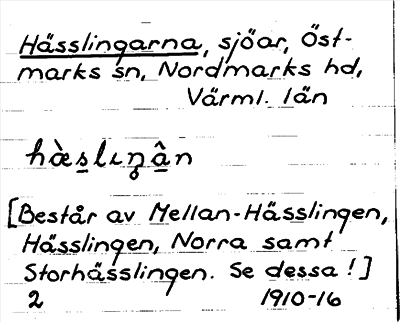 Hässlingarna, sjöar, Öst-
marks sn, Nordmarks hd,
Värml. län
hàslıŋân
[Består av Mellan-Hässlingen,
Hässlingen, Norra samt
Storhässlingen. Se dessa!]
2 1910-16